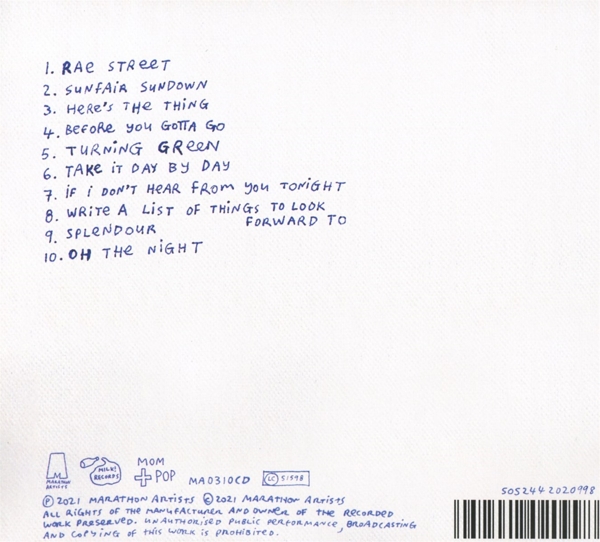 1. RAe STReeT
2. SUNFAiR SUNDOWN
3. HeRe's THe THiNG
4. BeFORe yOU GOTTA GO
5. TURNiNG GReeN
6. TAKe iT DAY BY DAY
7. iF i DON'T HeAR FROM yOU TONiGHT
8. WRiTe A LiST OF THiNGS TO LOOK
FORWARD TO
9. SPLeNDOUR
10. OH THe NiGHT
MARATHON
ARTiSTS
MiLK!
RECORDS
MOM
+POP
MA0310CD
LC 51598
5052442020998
℗ 2021 MARATHON ARTiSTS © 2021 MARATHON ARTiSTS
ALL RiGHTS OF THe MANUFACTUReR AND OWNeR OF THe RecORDeD
WORK PReSeRVeD. UNAUTHORiSeD PUBLic PeRFORMANce, BROADcASTiNG
AND cOPYiNG OF THiS WORK iS PROHiBiTeD.